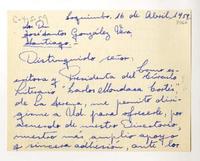 Coquimbo, 16 de Abril 1959.
Sr. Dn.
José Santos González Vera,
Santiago.-
Distinguido señor:
Como es-
critora y Presidenta del Círculo
Literario "Carlos Mondaca Cortés"
de La Serena, me permito diri-
girme a Ud. para ofrecerle, por
acuerdo de nuestro Directorio,
nuestro más amplio apoyo
y sincera adhesión, ante los